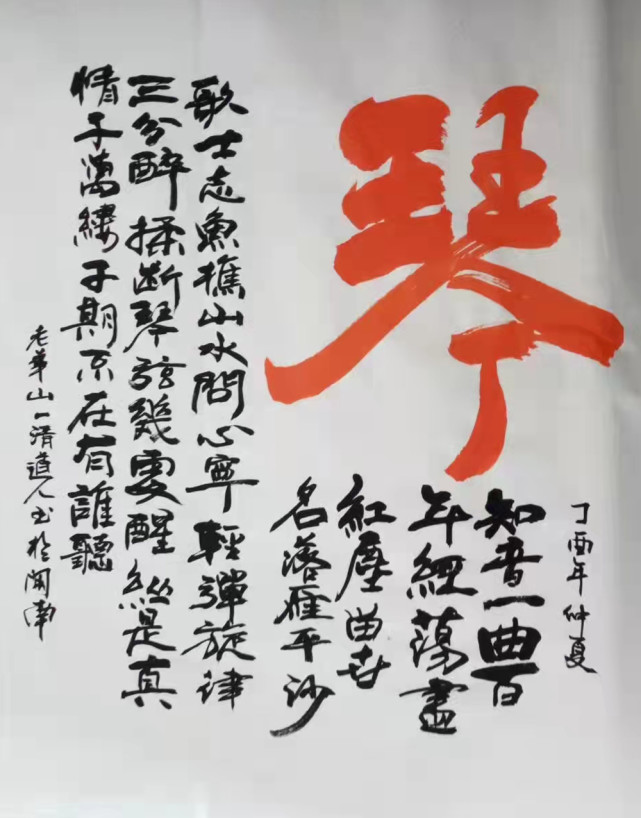 琴
丁酉年仲夏
知音一曲百
年經蕩盡
紅塵畄世
名落雁平沙
歌士志魚樵山水問心寧輕彈旋律
三分醉揉断琴弦幾醒縱是真
情千萬縷子期不在有誰聽
老華山一清道人书於閩南